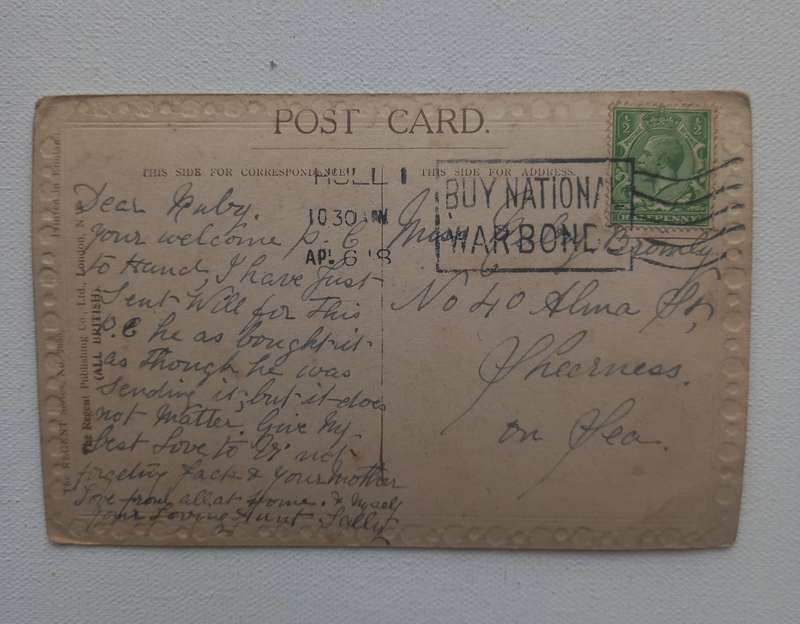 POST CARD.
THIS SIDE FOR CORRESPONDENCE
THIS SIDE FOR ADDRESS.
HULL 1
10 30 AM
AP. 6 18
BUY NATIONA
WAR BOND
1/2 1/2
HALFPENNY
Dear Ruby.
Your welcome P. C
to Hand, I have Just
Sent Will for This
P.C he as bought it
as Though he was
Sending it, but it does
not Matter. Give My
best Love to Vi not
forgeting Jack & Your Mother
Love from all at Home. & Myself
Your Loving Aunt Sally
Miss Bromly
No 40 Alma St,
Sheerness.
on Sea.
Printed in England.
The Regent Publishing Co., Ltd., London, N.
(ALL BRITISH)
The REGENT Series. No.